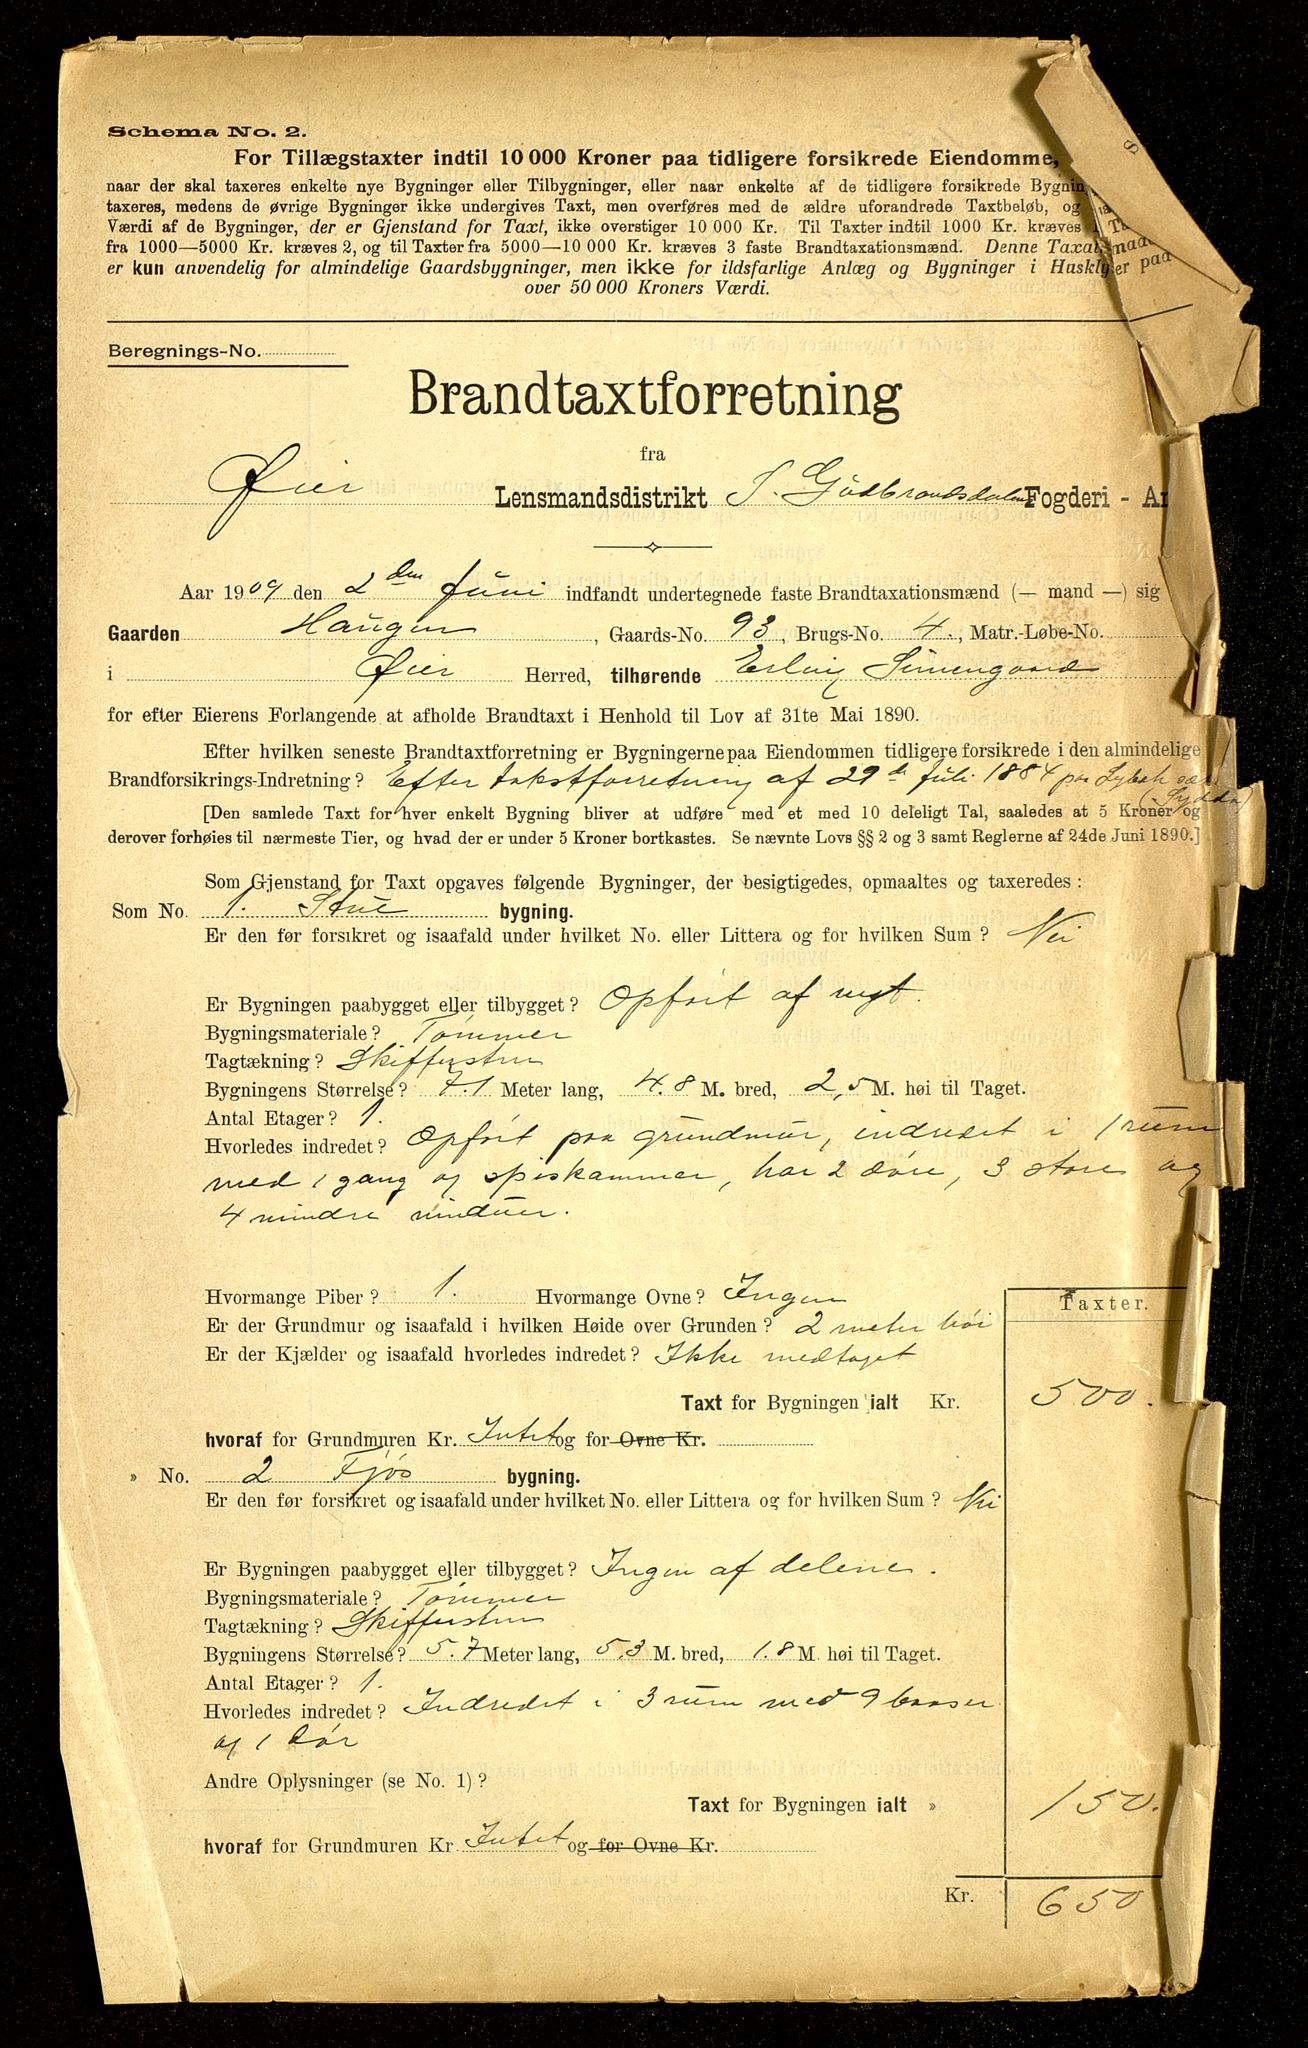 Schema No. 2.
For Tillægstaxter indtil 10 000 Kroner paa tidligere forsikrede Eiendomme,
naar der skal taxeres enkelte nye Bygninger eller Tilbygninger, eller naar enkelte af de tidligere forsikrede Bygnin
taxeres, medens de øvrige Bygninger ikke undergives Taxt, men overføres med de ældre uforandrede Taxtbeløb, og
Værdi af de Bygninger, der er Gjenstand for Taxt, ikke overstiger 10 000 Kr. Til Taxter indtil 1000 Kr. kræves 1
fra 1000—5000 Kr. kræves 2, og til Taxter fra 5000—10 000 Kr. kræves 3 faste Brandtaxationsmænd. Denne Taxat
er kun anvendelig for almindelige Gaardsbygninger, men ikke for ildsfarlige Anlæg og Bygninger i Huskly
over 50 000 Kroners Værdi.
Beregnings-No.
Brandtaxtforretning
fra
Øier Lensmandsdistrikt S. Gudbrandsdalens Fogderi - A
Aar 1909 den 2den Juni indfandt undertegnede faste Brandtaxationsmænd (— mand —) sig
Gaarden Haugen, Gaards-No. 93, Brugs-No. 4., Matr.-Løbe-No.
i Øier Herred, tilhørende Erling Simengaard
for efter Eierens Forlangende at afholde Brandtaxt i Henhold til Lov af 31te Mai 1890.
Efter hvilken seneste Brandtaxtforretning er Bygningerne paa Eiendommen tidligere forsikrede i den almindelige
Brandforsikrings-Indretning? Efter takstforretning af 29de Juli 1884 paa
[Den samlede Taxt for hver enkelt Bygning bliver at udføre med et med 10 deleligt Tal, saaledes at 5 Kroner og
derover forhøies til nærmeste Tier, og hvad der er under 5 Kroner bortkastes. Se nævnte Lovs §§ 2 og 3 samt Reglerne af 24de Juni 1890.]
Som Gjenstand for Taxt opgaves følgende Bygninger, der besigtigedes, opmaaltes og taxeredes:
Som No. 1. Stue bygning.
Er den før forsikret og isaafald under hvilket No. eller Littera og for hvilken Sum? Nei
Er Bygningen paabygget eller tilbygget? Opført af nyt.
Bygningsmateriale? Tømmer
Tagtækning? Skiffersten
Bygningens Størrelse? 7.1 Meter lang, 4.8 M. bred, 2,5 M. høi til Taget.
Antal Etager? 1.
Hvorledes indredet? Opført paa grundmur, indredet i 1 rum
med 1 gang og spiskammer, har 2 døre, 3 store og
4 mindre vinduer.
Hvormange Piber? 1. Hvormange Ovne? Ingen
Taxter.
Er der Grundmur og isaafald i hvilken Høide over Grunden? 2 meter høi
Er der Kjælder og isaafald hvorledes indredet? Ikke medtaget
Taxt for Bygningen ialt Kr. 500.
hvoraf for Grundmuren Kr. Intet og for Ovne Kr.
» No. 2 Fjøs bygning.
Er den før forsikret og isaafald under hvilket No. eller Littera og for hvilken Sum? Nei
Er Bygningen paabygget eller tilbygget? Ingen af delene.
Bygningsmateriale? Tømmer
Tagtækning? Skiffersten
Bygningens Størrelse? 5.7 Meter lang, 5.3 M. bred, 1.8 M. høi til Taget.
Antal Etager? 1.
Hvorledes indredet? Indredet i 3 rum med 9 baaser
og 1 dør
Andre Oplysninger (se No. 1)?
Taxt for Bygningen ialt » 150.
hvoraf for Grundmuren Kr. Intet og for Ovne Kr.
Kr. 650